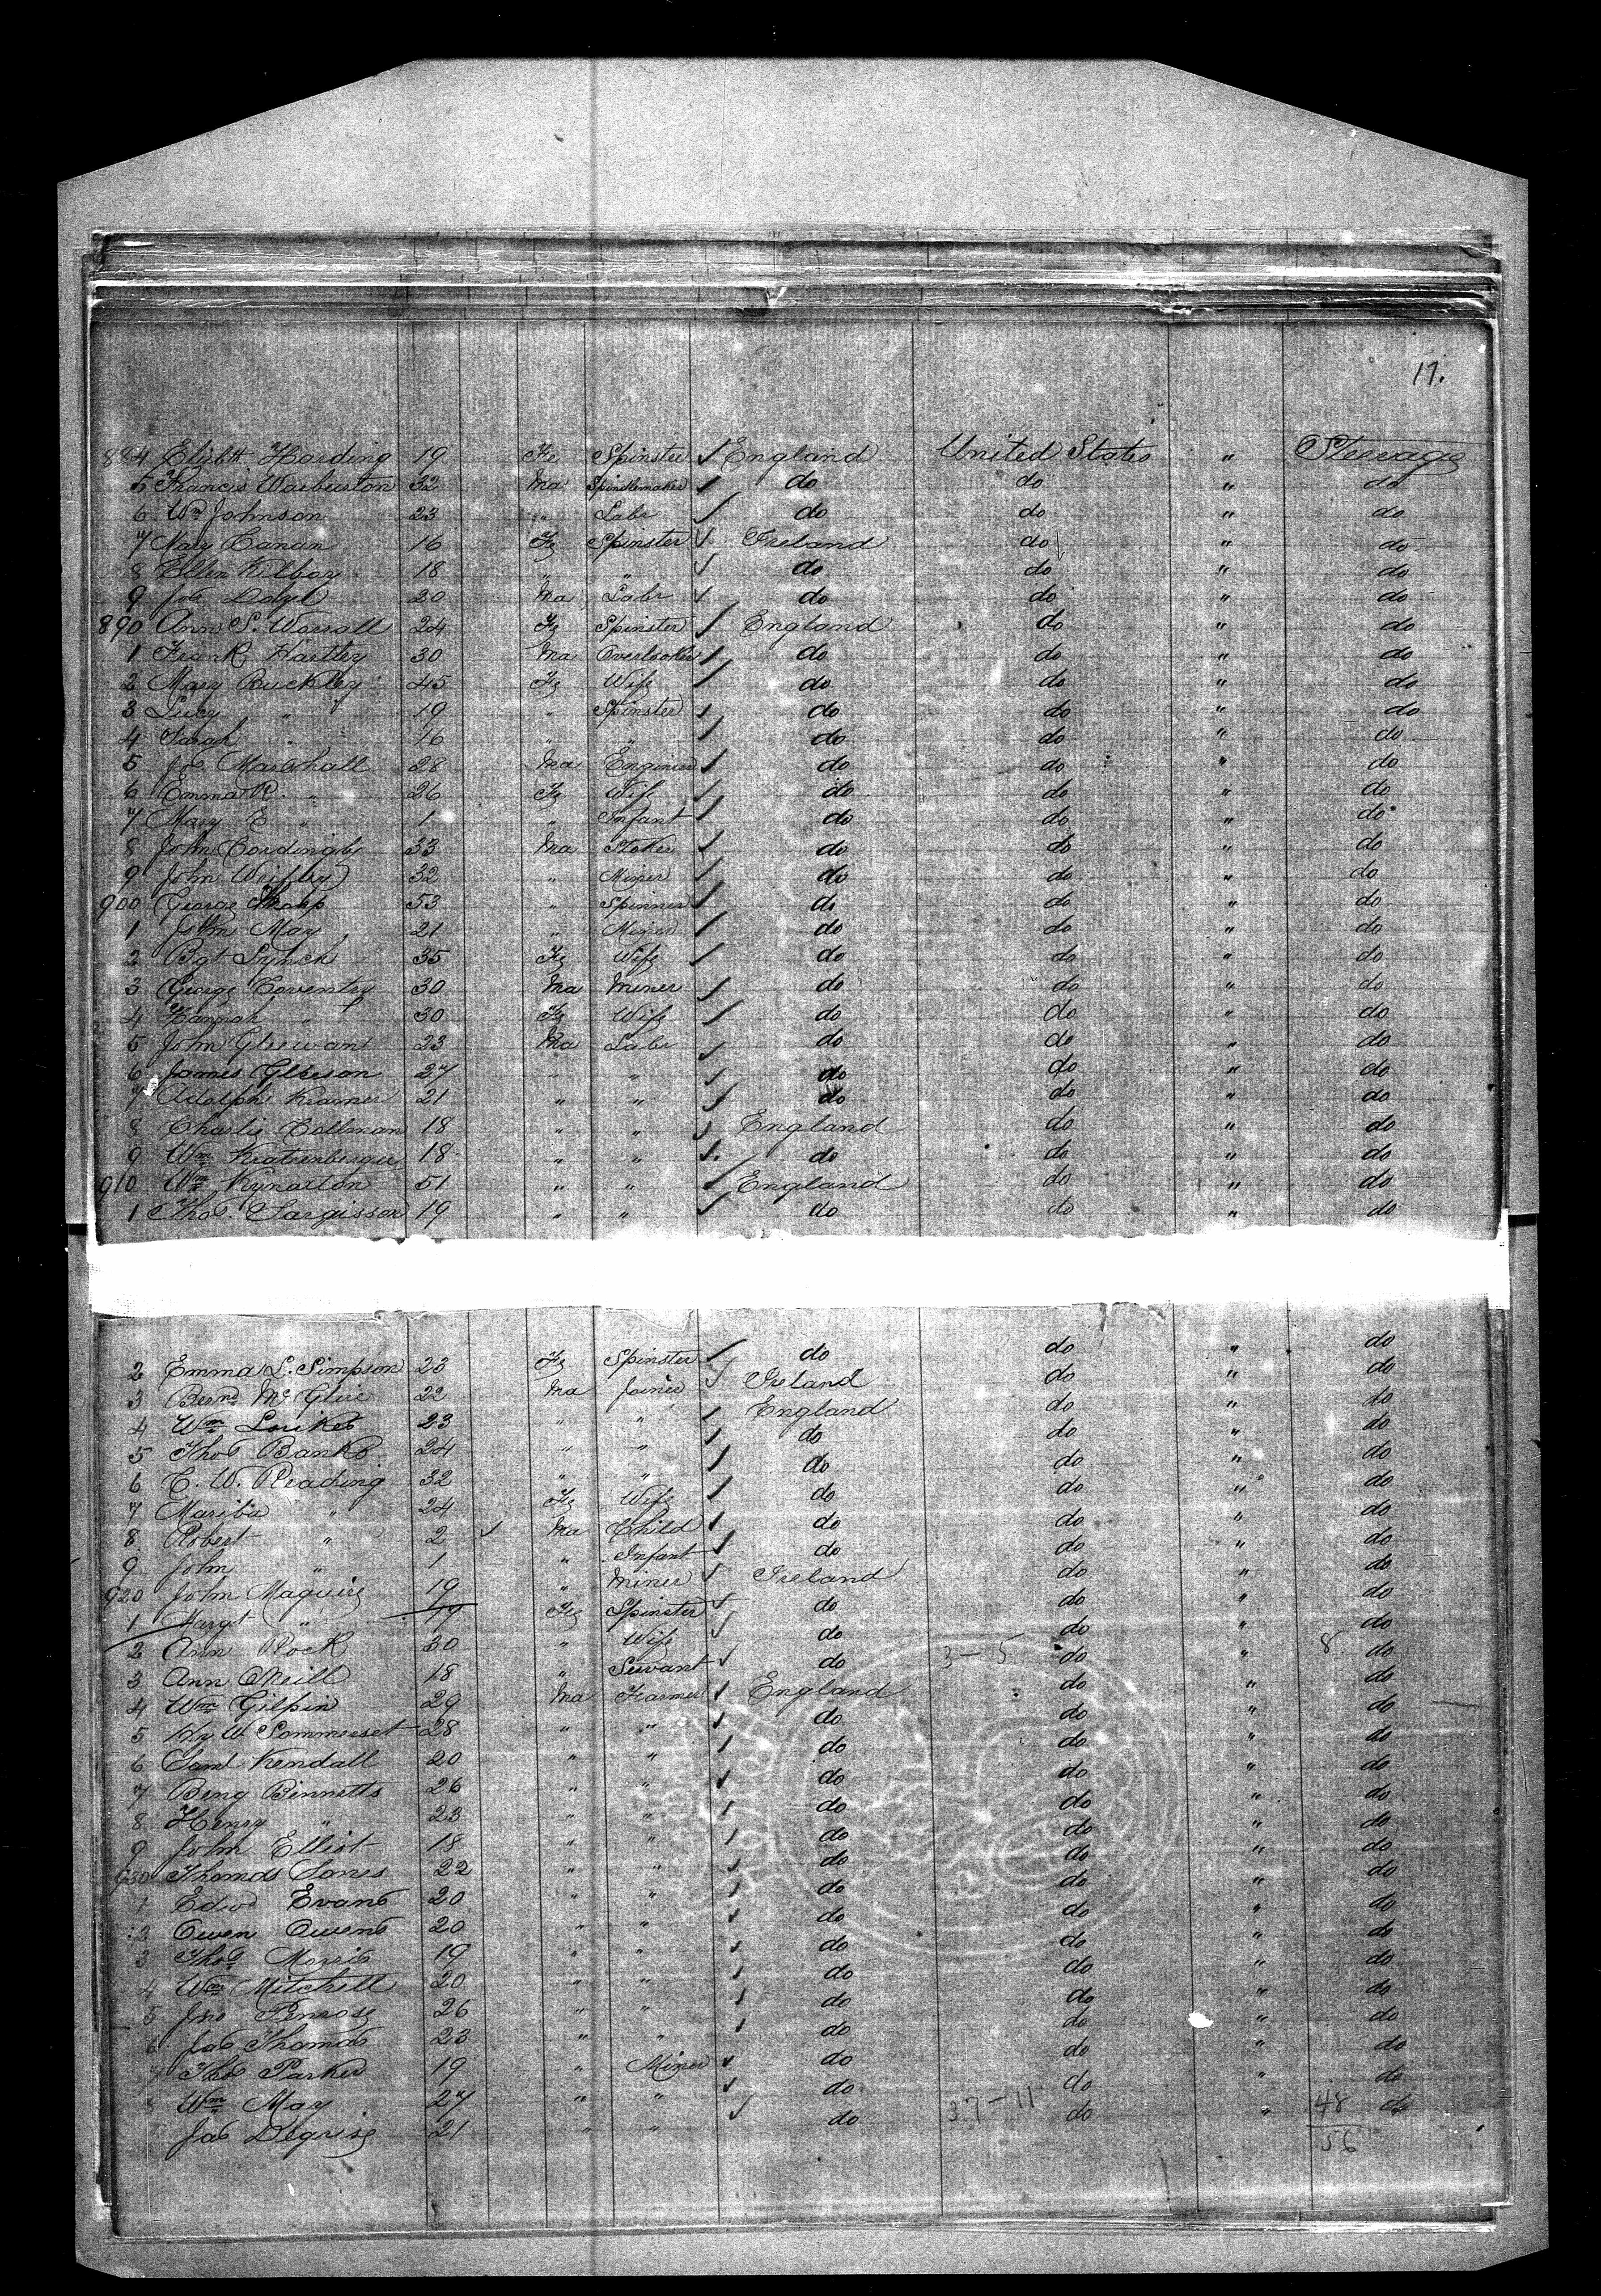 17.
884 Elizbth Harding 19 Fe Spinster ✓ England United States " Steerage
5 Francis Warburton 32 Ma Spindlemaker ✓ do do " do
6 Wm Johnson 23 " Labr ✓ do do " do
7 Mary Canan 16 Fe Spinster ✓ Ireland do " do
8 Ellen Kilboy 18 " " ✓ do do " do
9 Jos 20 Ma Labr ✓ do do " do
890 Ann S. Worrall 24 Fe Spinster ✓ England do " do
1 Frank Hartley 30 Ma Overlooker ✓ do do " do
2 Mary Buckley 45 Fe Wife ✓ do do " do
3 Lucy " 19 " Spinster ✓ do do " do
4 Sarah " 16 " " ✓ do do " do
5 Jos. Marshall 28 Ma Engineer ✓ do do " do
6 Emma R. " 26 Fe Wife ✓ do do " do
7 Mary E " 1 " Infant ✓ do do " do
8 John Cordingly 33 Ma Stoker ✓ do do " do
9 John 32 " Miner ✓ do do " do
900 George Sharp 53 " Spinner ✓ do do " do
1 John May 21 " Miner ✓ do do " do
2 Bgt Lynch 35 Fe Wife ✓ do do " do
3 George Coventry 30 Ma Miner ✓ do do " do
4 Hannah " 30 Fe Wife ✓ do do " do
5 John 23 Ma Labr ✓ do do " do
6 James Gleeson 27 " " ✓ do do " do
7 Adolph Kramer 21 " " ✓ do do " do
8 Charles Collman 18 " " ✓ England do " do
9 Wm Kratzenberger 18 " " ✓ do do " do
910 Wm Kynaston 51 " " ✓ England do " do
1 Thos. Sargisson 19 " " ✓ do do " do
2 Emma L. Simpson 23 Fe Spinster ✓ do do " do
3 Bernd McGlue 22 Ma Joiner ✓ Ireland do " do
4 Wm 23 " " ✓ England do " do
5 Thos Banks 24 " " ✓ do do " do
6 C. W. Reading 32 " " ✓ do do " do
7 Mariba " 24 Fe Wife ✓ do do " do
8 Robert " 2 ✓ Ma Child ✓ do do " do
9 John " 1 " Infant ✓ do do " do
920 John Maguire 19 " Miner ✓ Ireland do " do
1 Margt " 19 Fe Spinster ✓ do do " do
2 Ann Rock 30 " Wife ✓ do do " do
3 Ann ONeill 18 " Servant ✓ do 3-5 do " 8 do
4 Wm Gilpin 29 Ma Farmer ✓ England do " do
5 Hy W Sommerset 28 " " ✓ do do " do
6 Saml Kendall 20 " " ✓ do do " do
7 Benj Binnetts 26 " " ✓ do do " do
8 Henry " 23 " " ✓ do do " do
9 John Elliot 18 " " ✓ do do " do
930 Thomas Jones 22 " " ✓ do do " do
1 Edwd Evans 20 " " ✓ do do " do
2 Owen Owens 20 " " ✓ do do " do
3 Thos Morris 19 " " ✓ do do " do
4 Wm Mitchell 20 " " ✓ do do " do
5 Jno Penrose 26 " " ✓ do do " do
6 Jas Thomas 23 " " ✓ do do " do
7 Thos Parker 19 " Miner ✓ do do " do
8 Wm May 27 " " ✓ do do " do
Jas 21 " " ✓ do 37-11 do " 48 do
56